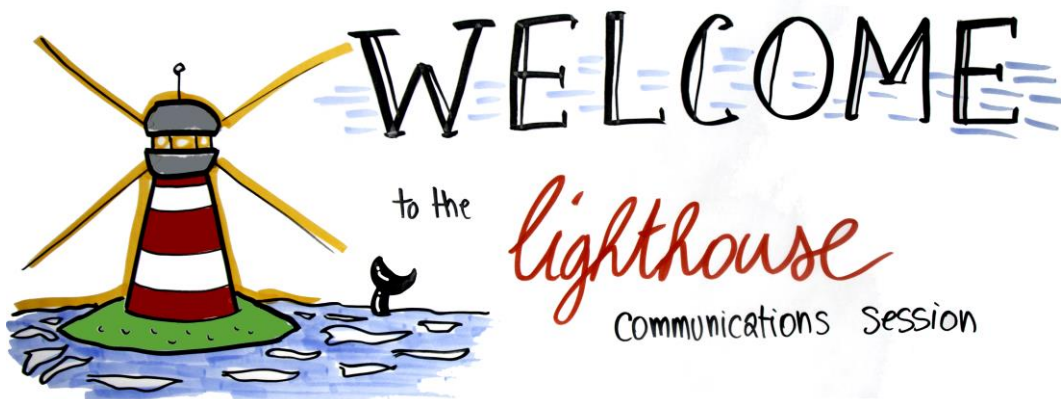 WELCOME
to the lighthouse
communications session